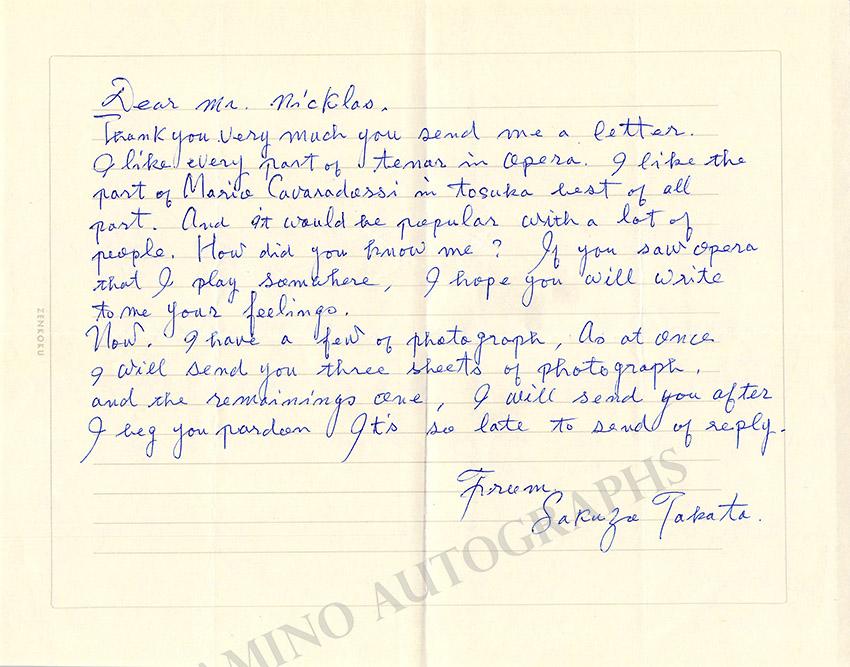 Dear Mr. Nicklas.
Thank you very much you send me a letter.
I like every part of tenar in opera. I like the
part of Mario Cavaradossi in tosuka best of all
part. And it would be popular with a lot of
people. How did you know me? If you saw opera
that I play somwhere, I hope you will write
to me your feelings.
Now. I have a few of photograph, As at once
I will send you three sheets of photograph,
and the remainings one, I will send you after
I beg you pardon It's so late to send of reply.
From.
Sakuzo Takata.
ZENKOKU
AMINO AUTOGRAPHS